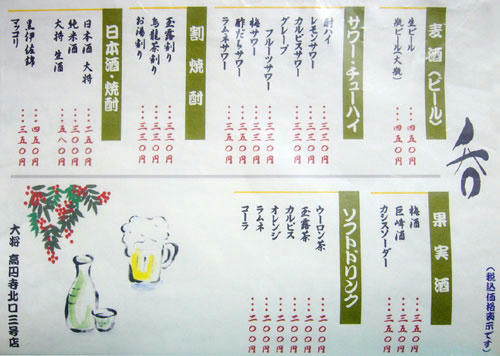 呑
麦酒(ビール)
生ビール …四五〇円
瓶ビール(大瓶) …四五〇円
サワー・チューハイ
酎ハイ …三三〇円
レモンサワー …三三〇円
カルピスサワー …三三〇円
グレープ …三三〇円
フルーツサワー …三三〇円
梅サワー …三三〇円
酢だちサワー …三三〇円
ラムネサワー …三五〇円
割焼酎
玉露割り …三三〇円
烏龍茶割り …三三〇円
お湯割り …三三〇円
日本酒・焼酎
日本酒 大将 …二五〇円
純米酒 …四五〇円
大将 生酒 …五八〇円
黒伊佐錦 …四五〇円
マッコリ …三五〇円
果実酒
梅酒 …三五〇円
巨峰酒 …三五〇円
カシスソーダー …三五〇円
ソフトドリンク
ウーロン茶 …二〇〇円
玉露茶 …二〇〇円
カルピス …二〇〇円
オレンジ …二〇〇円
ラムネ …二〇〇円
コーラ …二〇〇円
(税込価格表示です)
大将 高円寺北口三号店